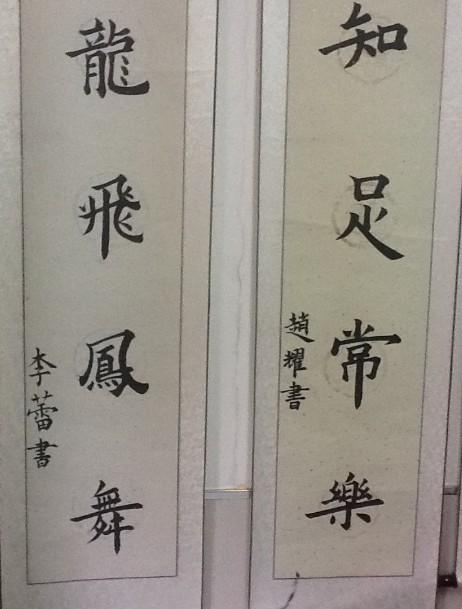 知足常樂
趙耀書
龍飛鳳舞
李蕾書